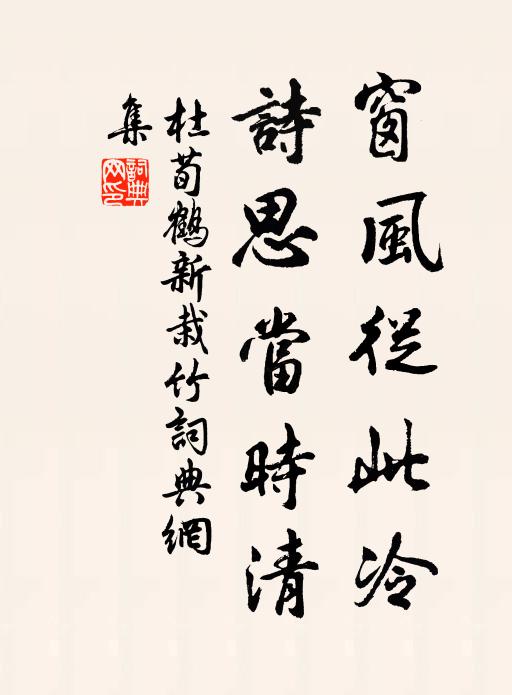 窗風從此冷
詩思當時清
杜荀鶴新栽竹詞典網
集
詞典網印